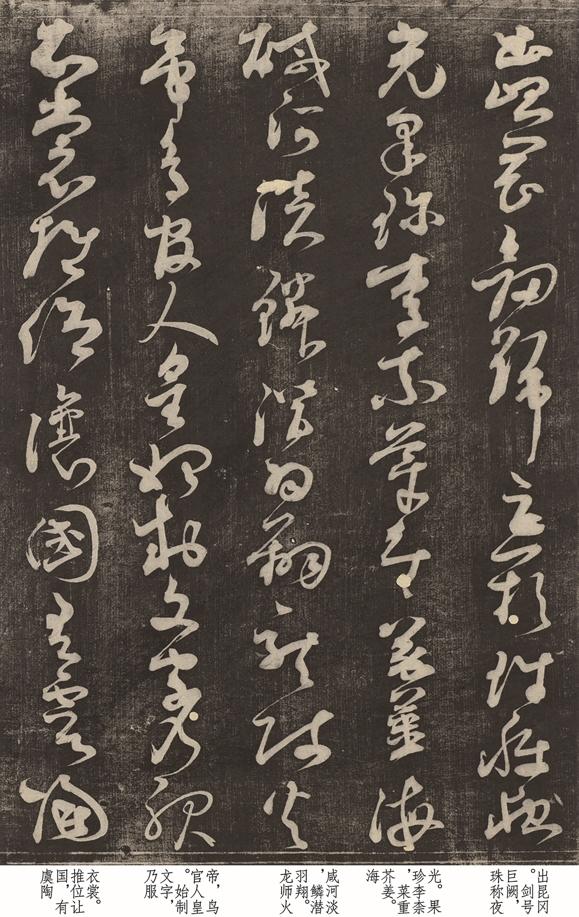 出崑岡劒號巨闕珠稱夜
光果珍李柰菜重芥薑海
鹹河淡鱗潛羽翔龍師火
帝鳥官人皇始制文字乃服
衣裳推位讓國有虞陶
出昆冈
。剑号
巨阙，
珠称夜
光。果
珍李柰
，菜重
芥姜。
海
咸河淡
，鳞潜
羽翔。
龙师火
帝，鸟
官人皇
。始制
文字，
乃服
衣裳。
推位让
国，有
虞陶